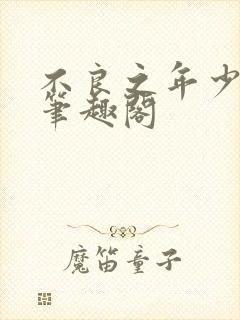 不良之年少
筆趣閣
魔笛童子